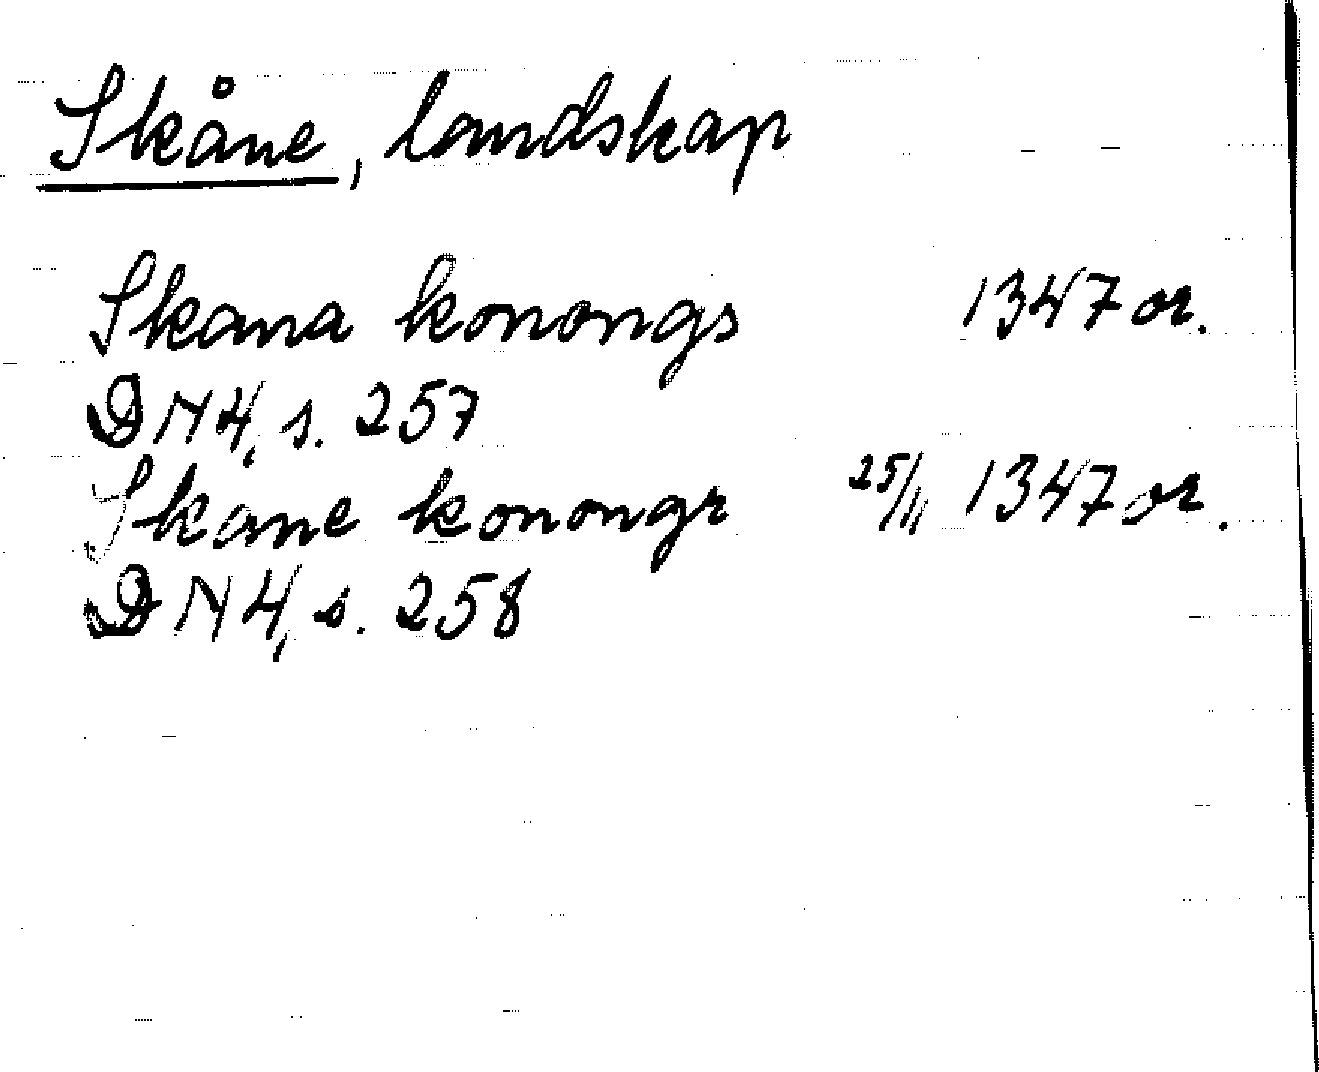 Skåne, landskap
Skana konongs 1347 or.
DN 4, s. 257
Skane konongr 25/11 1347 or.
DN 4, s. 258